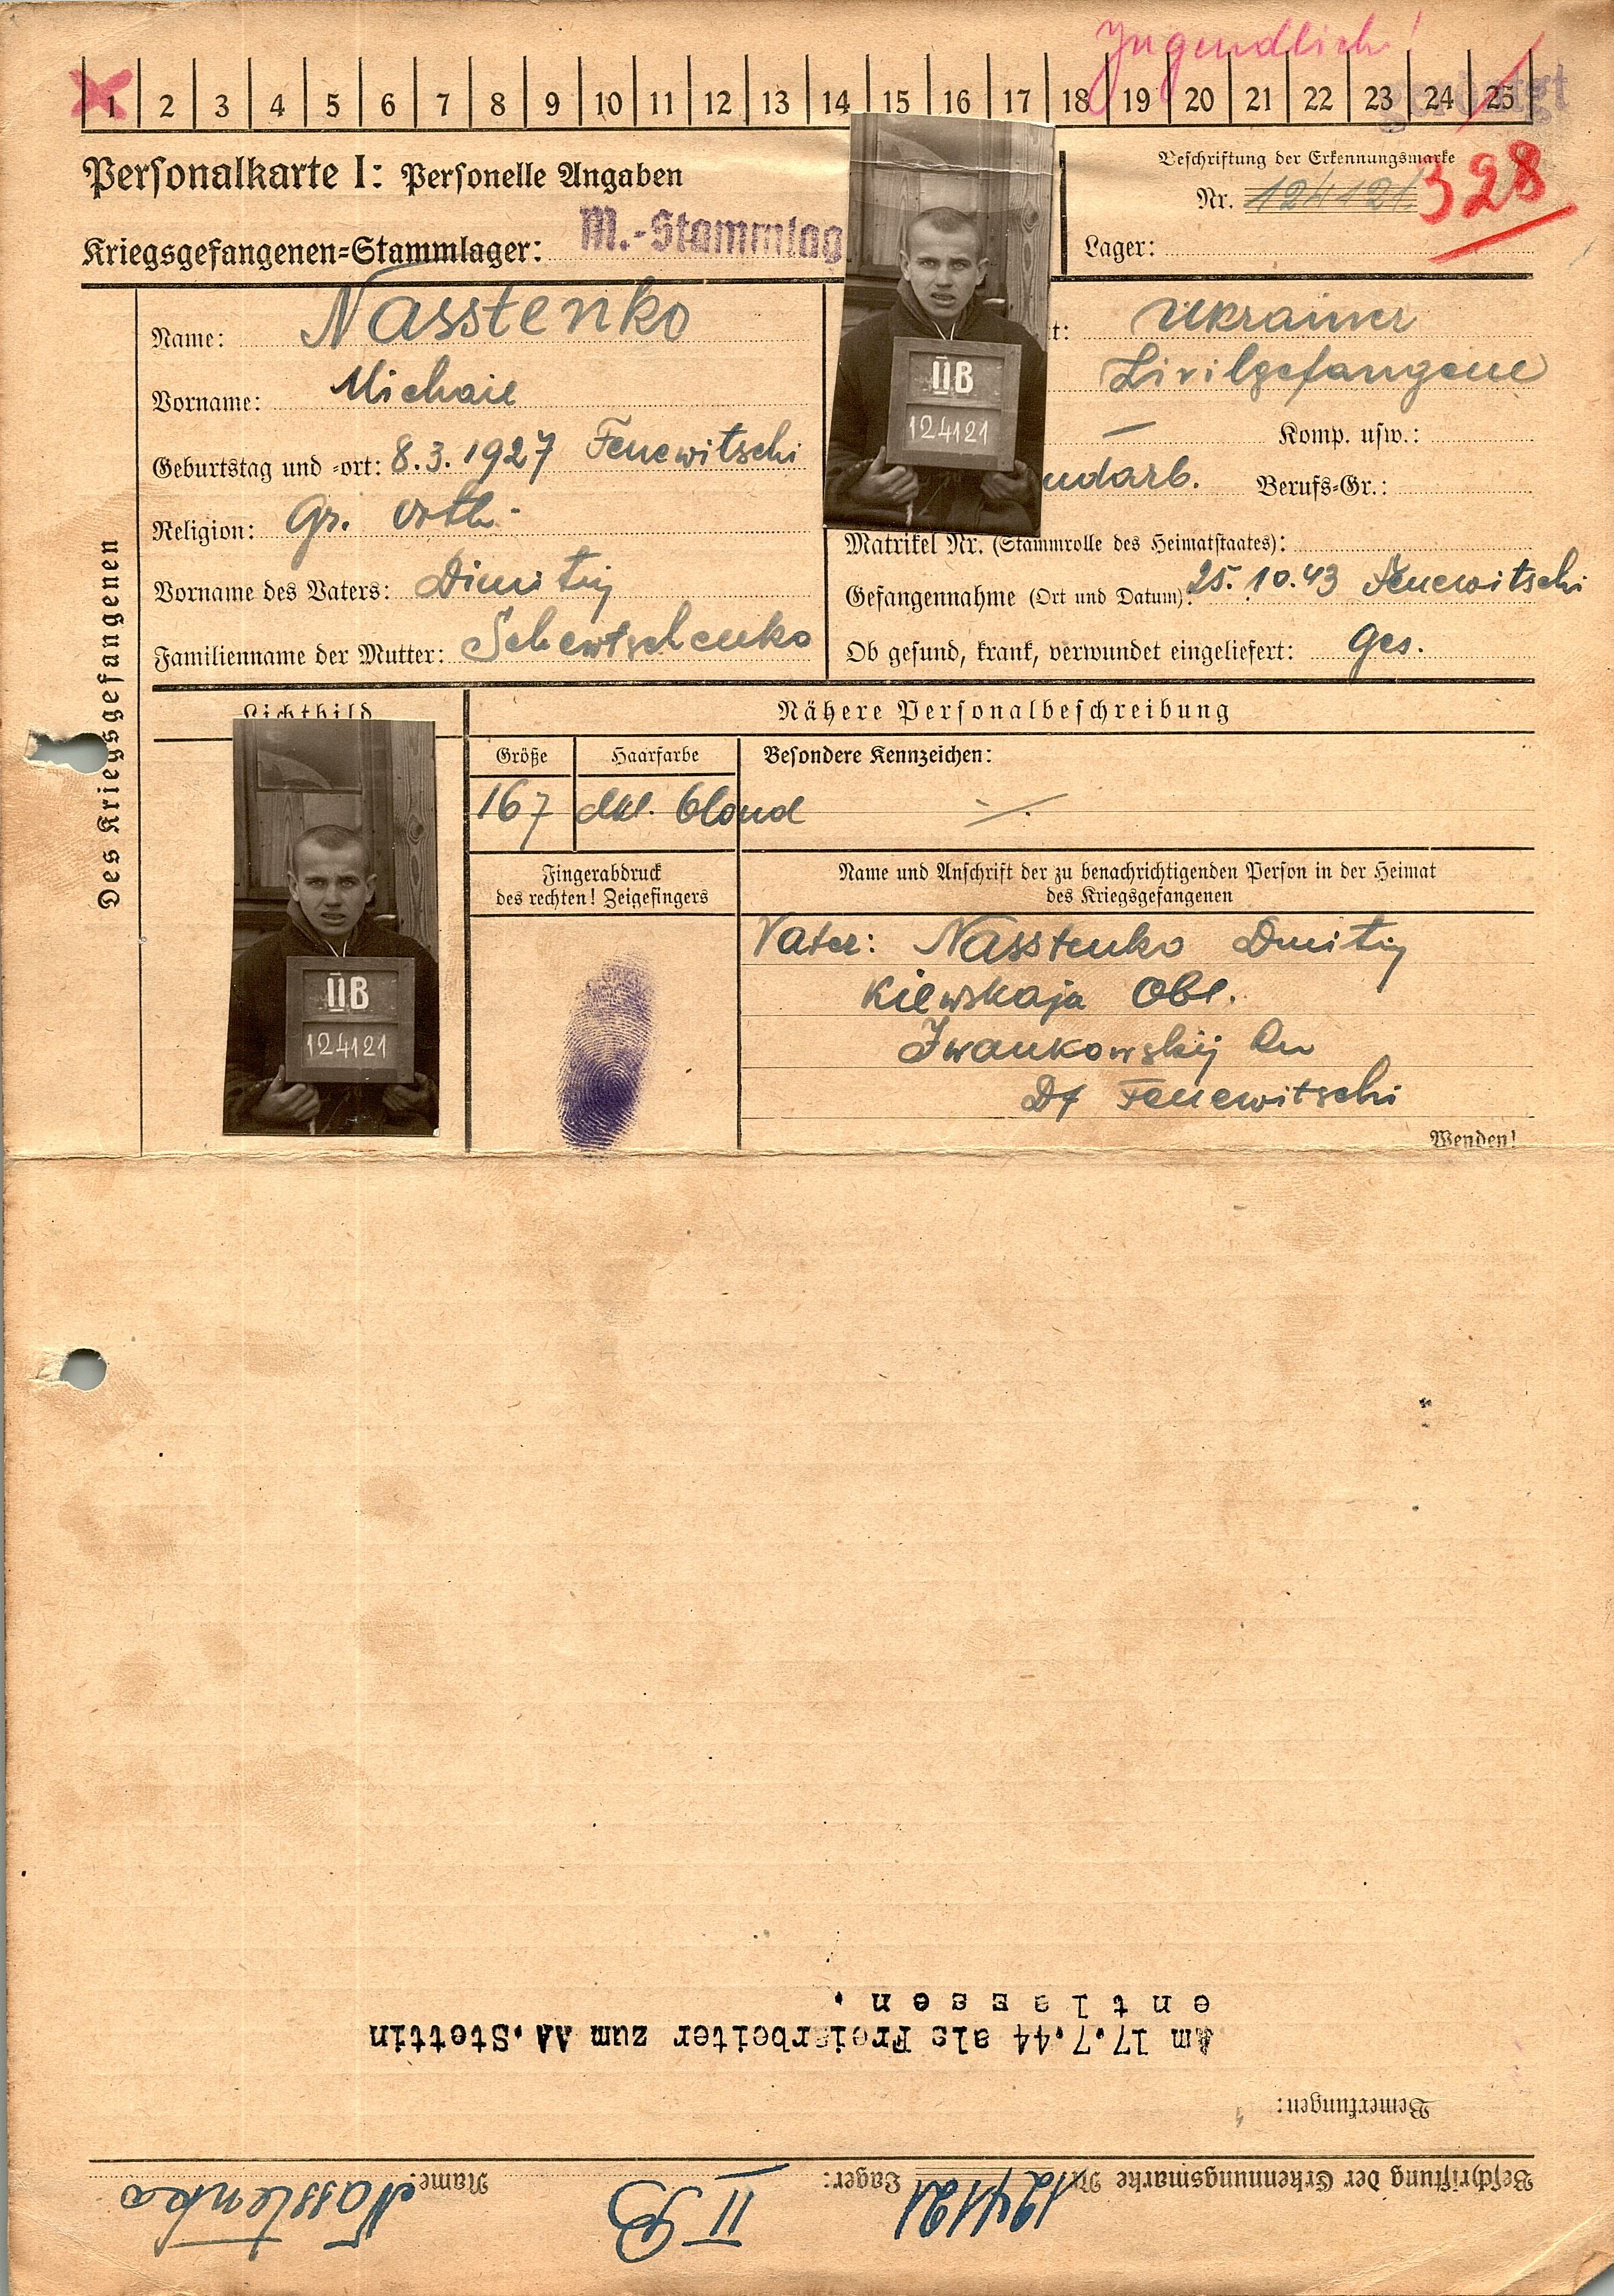 Jugendlich!
1 2 3 4 5 6 7 8 9 10 11 12 13 14 15 16 17 18 19 20 21 22 23 24 25
Personalkarte I: Personelle Angaben
Beschriftung der Erkennungsmarke
Nr. 124121 328
Kriegsgefangenen=Stammlager: M.-Stammlag
Lager:
Des Kriegsgefangenen
Name: Nasstenko
Vorname: Michail
Geburtstag und =ort: 8.3.1927 Fenewitschi
Religion: Gr. Orth.
Vorname des Vaters: Dimitrij
Familienname der Mutter: Schewtschenko
t: Ukrainer
Zivilgefangene
— Komp. usw.:
ndarb. Berufs=Gr.:
Matrikel Nr. (Stammrolle des Heimatstaates):
Gefangennahme (Ort und Datum): 25.10.43 Fenewitschi
Ob gesund, krank, verwundet eingeliefert: Ges.
IIB
124121
Lichtbild
Nähere Personalbeschreibung
Größe Haarfarbe Besondere Kennzeichen:
167 dkl. blond
Fingerabdruck
des rechten! Zeigefingers
Name und Anschrift der zu benachrichtigenden Person in der Heimat
des Kriegsgefangenen
Vater: Nasstenko Dmitrij
Kiewskaja Obl.
Iwankowskij
Df Fenewitschi
IIB
124121
Wenden!
Beschriftung der Erkennungsmarke Nr. 124121 Lager: II B Name: Nasstenko
Bemerkungen:
Am 17.7.44 als Freiarbeiter zum AA.Stettin
entlassen.